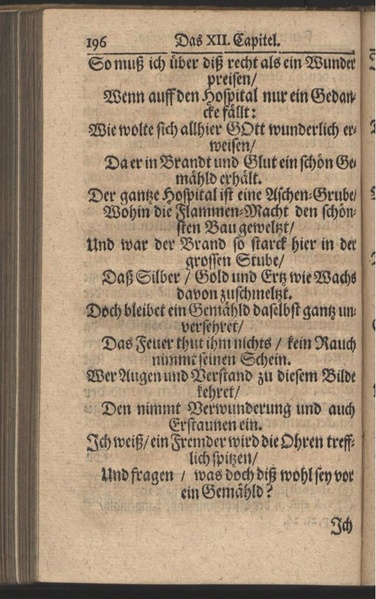 196 Das XII. Capitel.
So muß ich über diß recht als ein Wunder
preisen/
Wenn auff den Hospital nur ein Gedan-
cke fällt:
Wie wolte sich allhier GOtt wunderlich er-
weisen/
Da er in Brandt und Glut ein schön Ge-
mähld erhält.
Der gantze Hospital ist eine Aschen-Grube/
Wohin die Flammen-Macht den schön-
sten Bau geweltzt/
Und war der Brand so starck hier in der
grossen Stube/
Daß Silber / Gold und Ertz wie Wachs
davon zuschmeltzt.
Doch bleibet ein Gemähld daselbst gantz un-
versehret/
Das Feuer thut ihm nichts / kein Rauch
nimmt seinen Schein.
Wer Augen und Verstand zu diesem Bilde
kehret/
Den nimmt Verwunderung und auch
Erstaunen ein.
Ich weiß/ ein Fremder wird die Ohren treff-
lich spitzen/
Und fragen / was doch diß wohl sey vor
ein Gemähld?
Ich